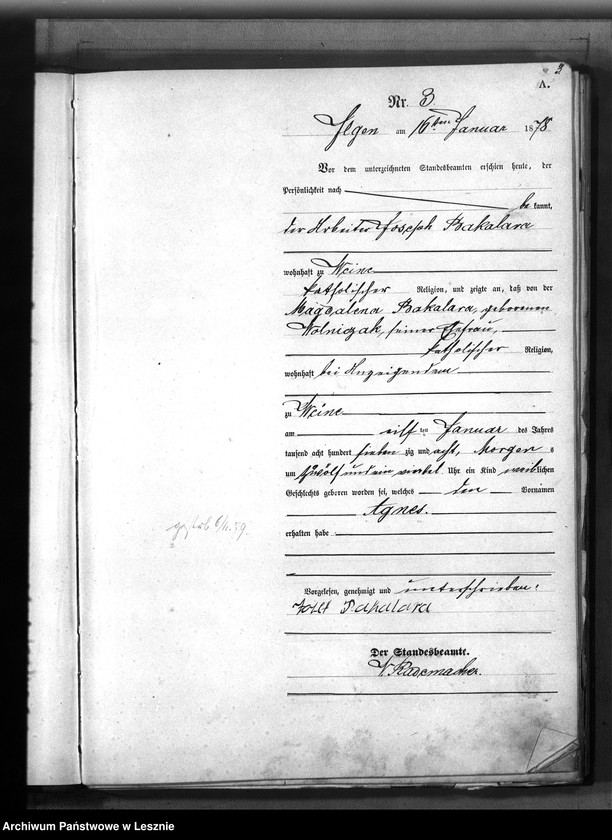 3
A.
Nr. 3.
Ilgen am 16ten Januar 1878
Vor dem unterzeichneten Standesbeamten erschien heute, der
Persönlichkeit nach
be kannt,
der Arbeiter Joseph Bakalara
wohnhaft zu Weine
katholischer Religion, und zeigte an, daß von der
Magdalena Bakalara, geborenen
Wolniczak, seiner Ehefrau,
katholischer Religion,
wohnhaft bei Anzeigendem
zu Weine
am eilf ten Januar des Jahres
tausend acht hundert sieben zig und acht, Morgen s
um zwölf und ein viertel Uhr ein Kind weiblichen
Geschlechts geboren worden sei, welches den Vornamen
Agnes.
erhalten habe
Vorgelesen, genehmigt und unterschrieben:
Josef Bakalara
Der Standesbeamte.
Rademacher.
Archiwum Państwowe w Lesznie